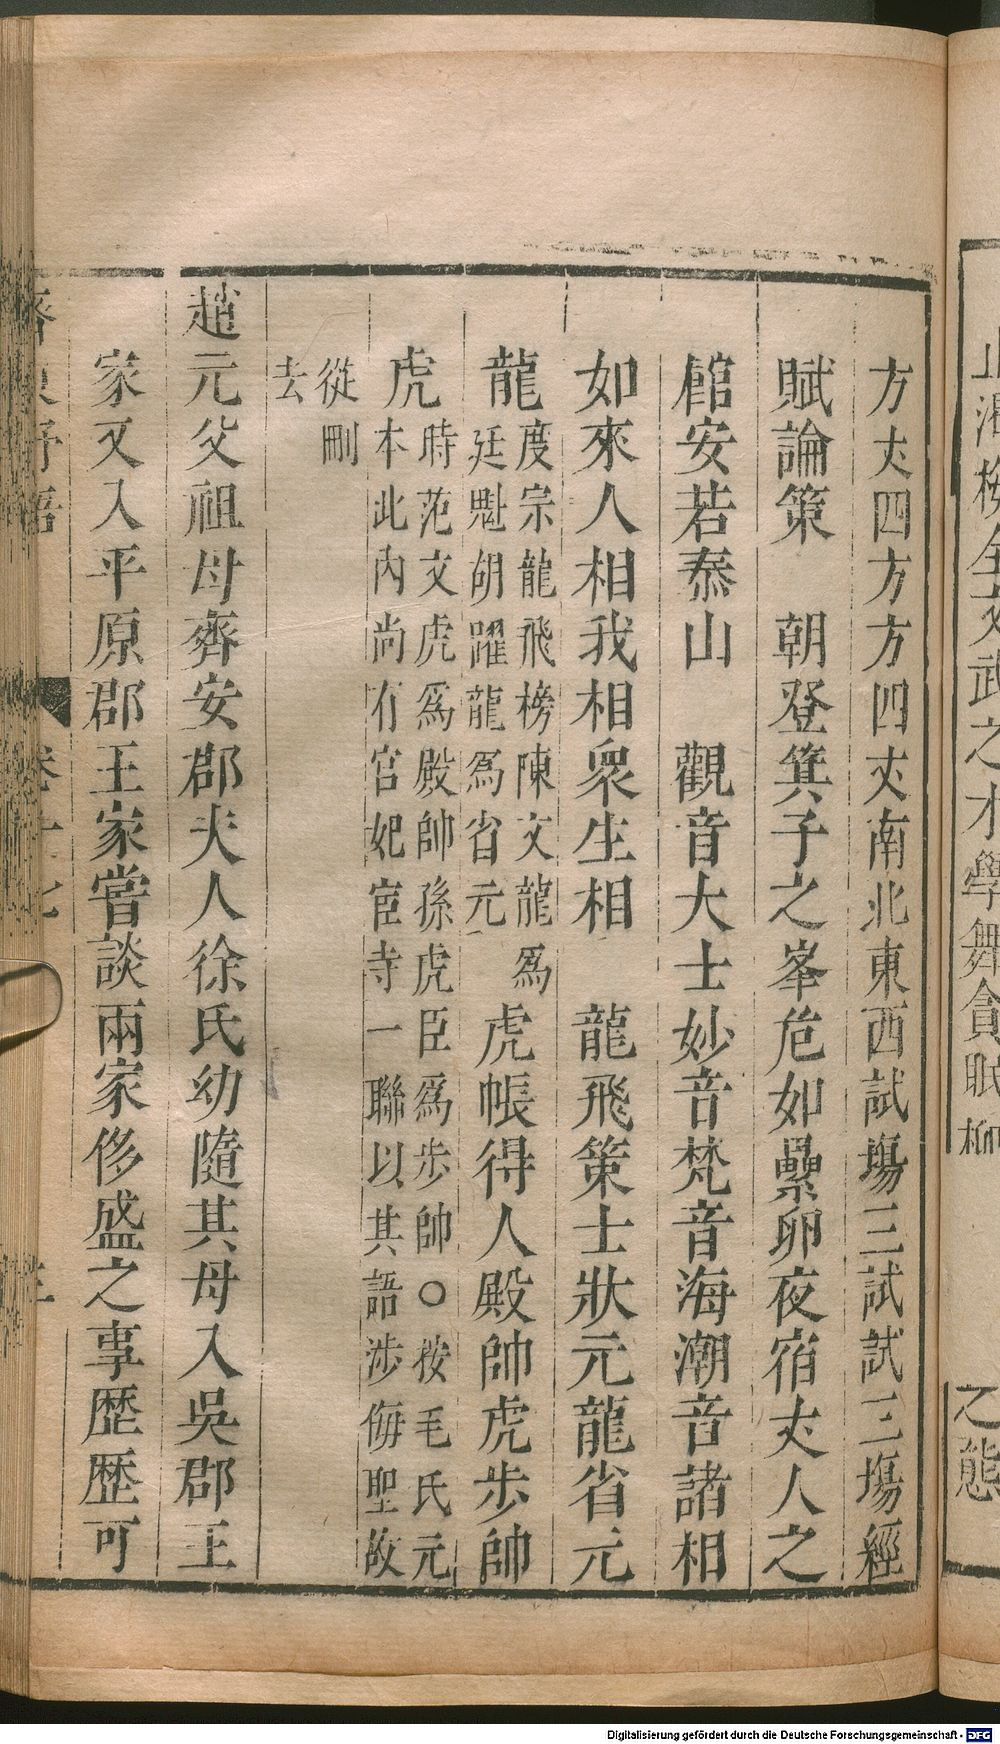 方丈四方方四丈南北東西試塲三試試三塲經
賦論策　朝登箕子之峯危如纍卵夜宿丈人之
館安若泰山　觀音大士妙音梵音海潮音諸相
如來人相我相衆生相　龍飛策士狀元龍省元
龍度宗龍飛榜陳文龍爲
廷魁胡躍龍爲省元
虎帳得人殿帥虎步帥
虎時范文虎爲殿帥孫虎臣爲步帥○按毛氏元
本此内尚有宫妃宦寺一聯以其語涉侮聖故
從刪
去
趙元父祖母齊安郡夫人徐氏幼隨其母入吳郡王
家又入平原郡王家嘗談兩家侈盛之事歴歴可
Digitalisierung gefördert durch die Deutsche Forschungsgemeinschaft - DFG